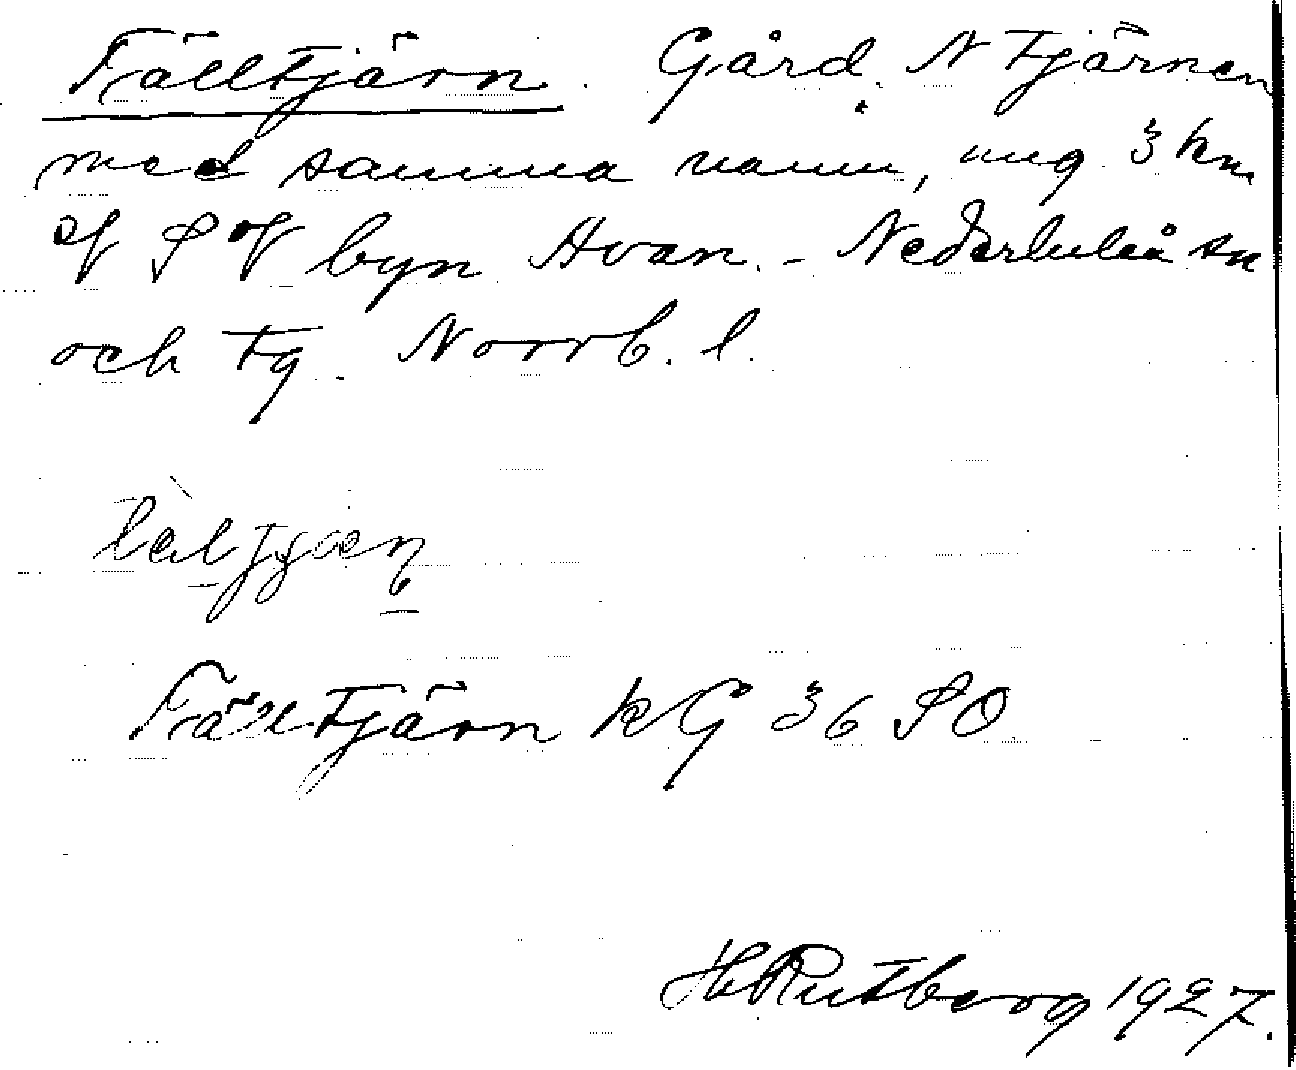 Fälltjärn. Gård. N tjärnen
med samma namn, ung 3 km
af S of byn Avan. - Nederluleå sn
och tg. Norrb. l.
Fälltjärn kG 36 SO
H Rutberg 1927.